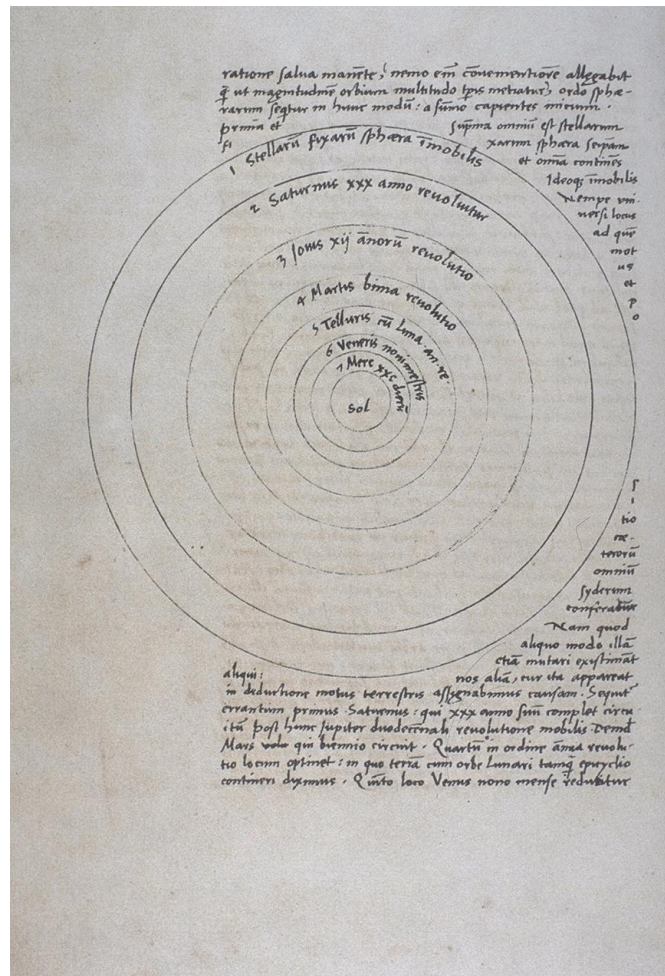 ratione salva manēte, nemo em̄ cōvenientiorē allegabit
q̄ ut magnitudinē orbium multitudo tp̄is metiatur, ordo sphæ-
rarum seqt̄ur in hunc modū: a sūmo capientes inicium.
prima et suprima omniū est stellarum
fi xarum sphæra seipsam
et omnia continēs
Ideoqꝫ īmobilis
Nempe uni-
versi locus
ad quē
mot
us
et
p
o
1 Stellarū fixarū sphæra īmobilis
2 Saturnus xxx anno revoluitur
3 Jovis xij ānorū revolutio
4 Martis bima revolutio
5 Telluris cū Luna an. re.
6 Veneris nonimestris
7 Merc xxc dierū
Sol
s
i
tio
cæ-
terorū
omniū
syderum
conferatur
Nam quod
aliquo modo illā
etiā mutari existimāt
aliqui: nos aliā, cur ita appareat
in deductione motus terrestris assignabimus causam. Sequit̄
errantium primus Saturnus: qui xxx anno suū complet circu
itū post hunc Jupiter duodecēnali revolutione mobilis Deind
Mars qui biennio circuit. Quartū in ordine ānua revolu-
tio locum optinet: in quo terrā cum orbe Lunari tanq̄ epicyclio
contineri diximus. Quinto loco Venus nono mense reducitur